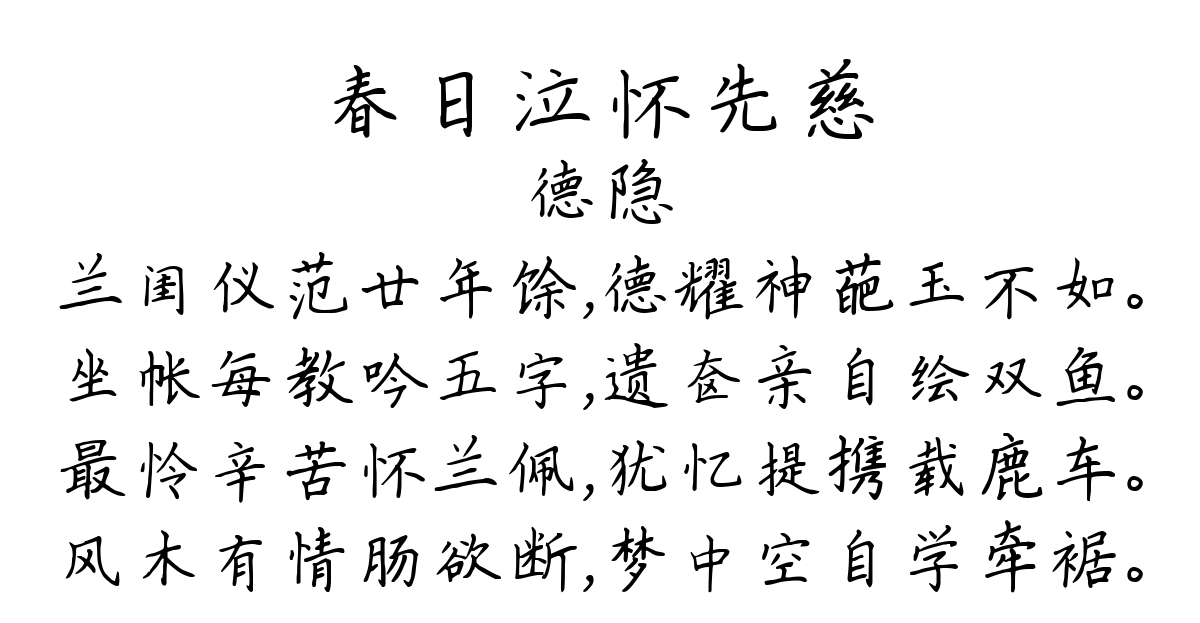 春日泣怀先慈
德隐
兰闺仪范廿年馀,德耀神葩玉不如。
坐帐每教吟五字,遗奁亲自绘双鱼。
最怜辛苦怀兰佩,犹忆提携载鹿车。
风木有情肠欲断,梦中空自学牵裾。